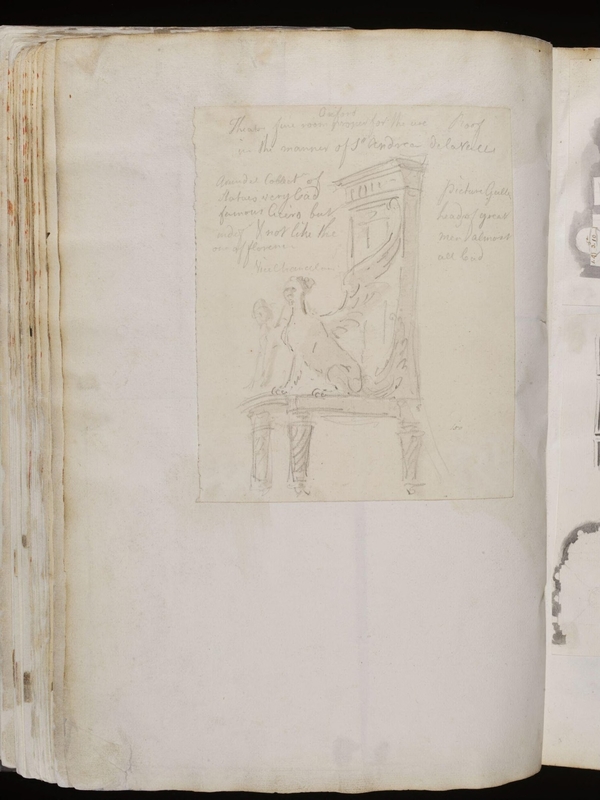 Oxford
Theater, fine room proper for the use Roof
in the manner of St Andrea dela Valle
Arundel Collect. of
Statues very bad
famous Cicero but
indif. & not like the
one of florence.
Vice Chancelor
Picture Gally
heads of great
men almost
all bad